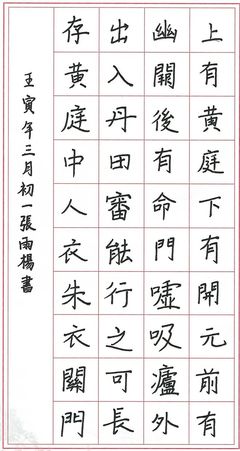 上有黄庭下有開元前有
幽闕後有命門嘘吸廬外
出入丹田審能行之可長
存黄庭中人衣朱衣關門
壬寅年三月初一張雨楊書